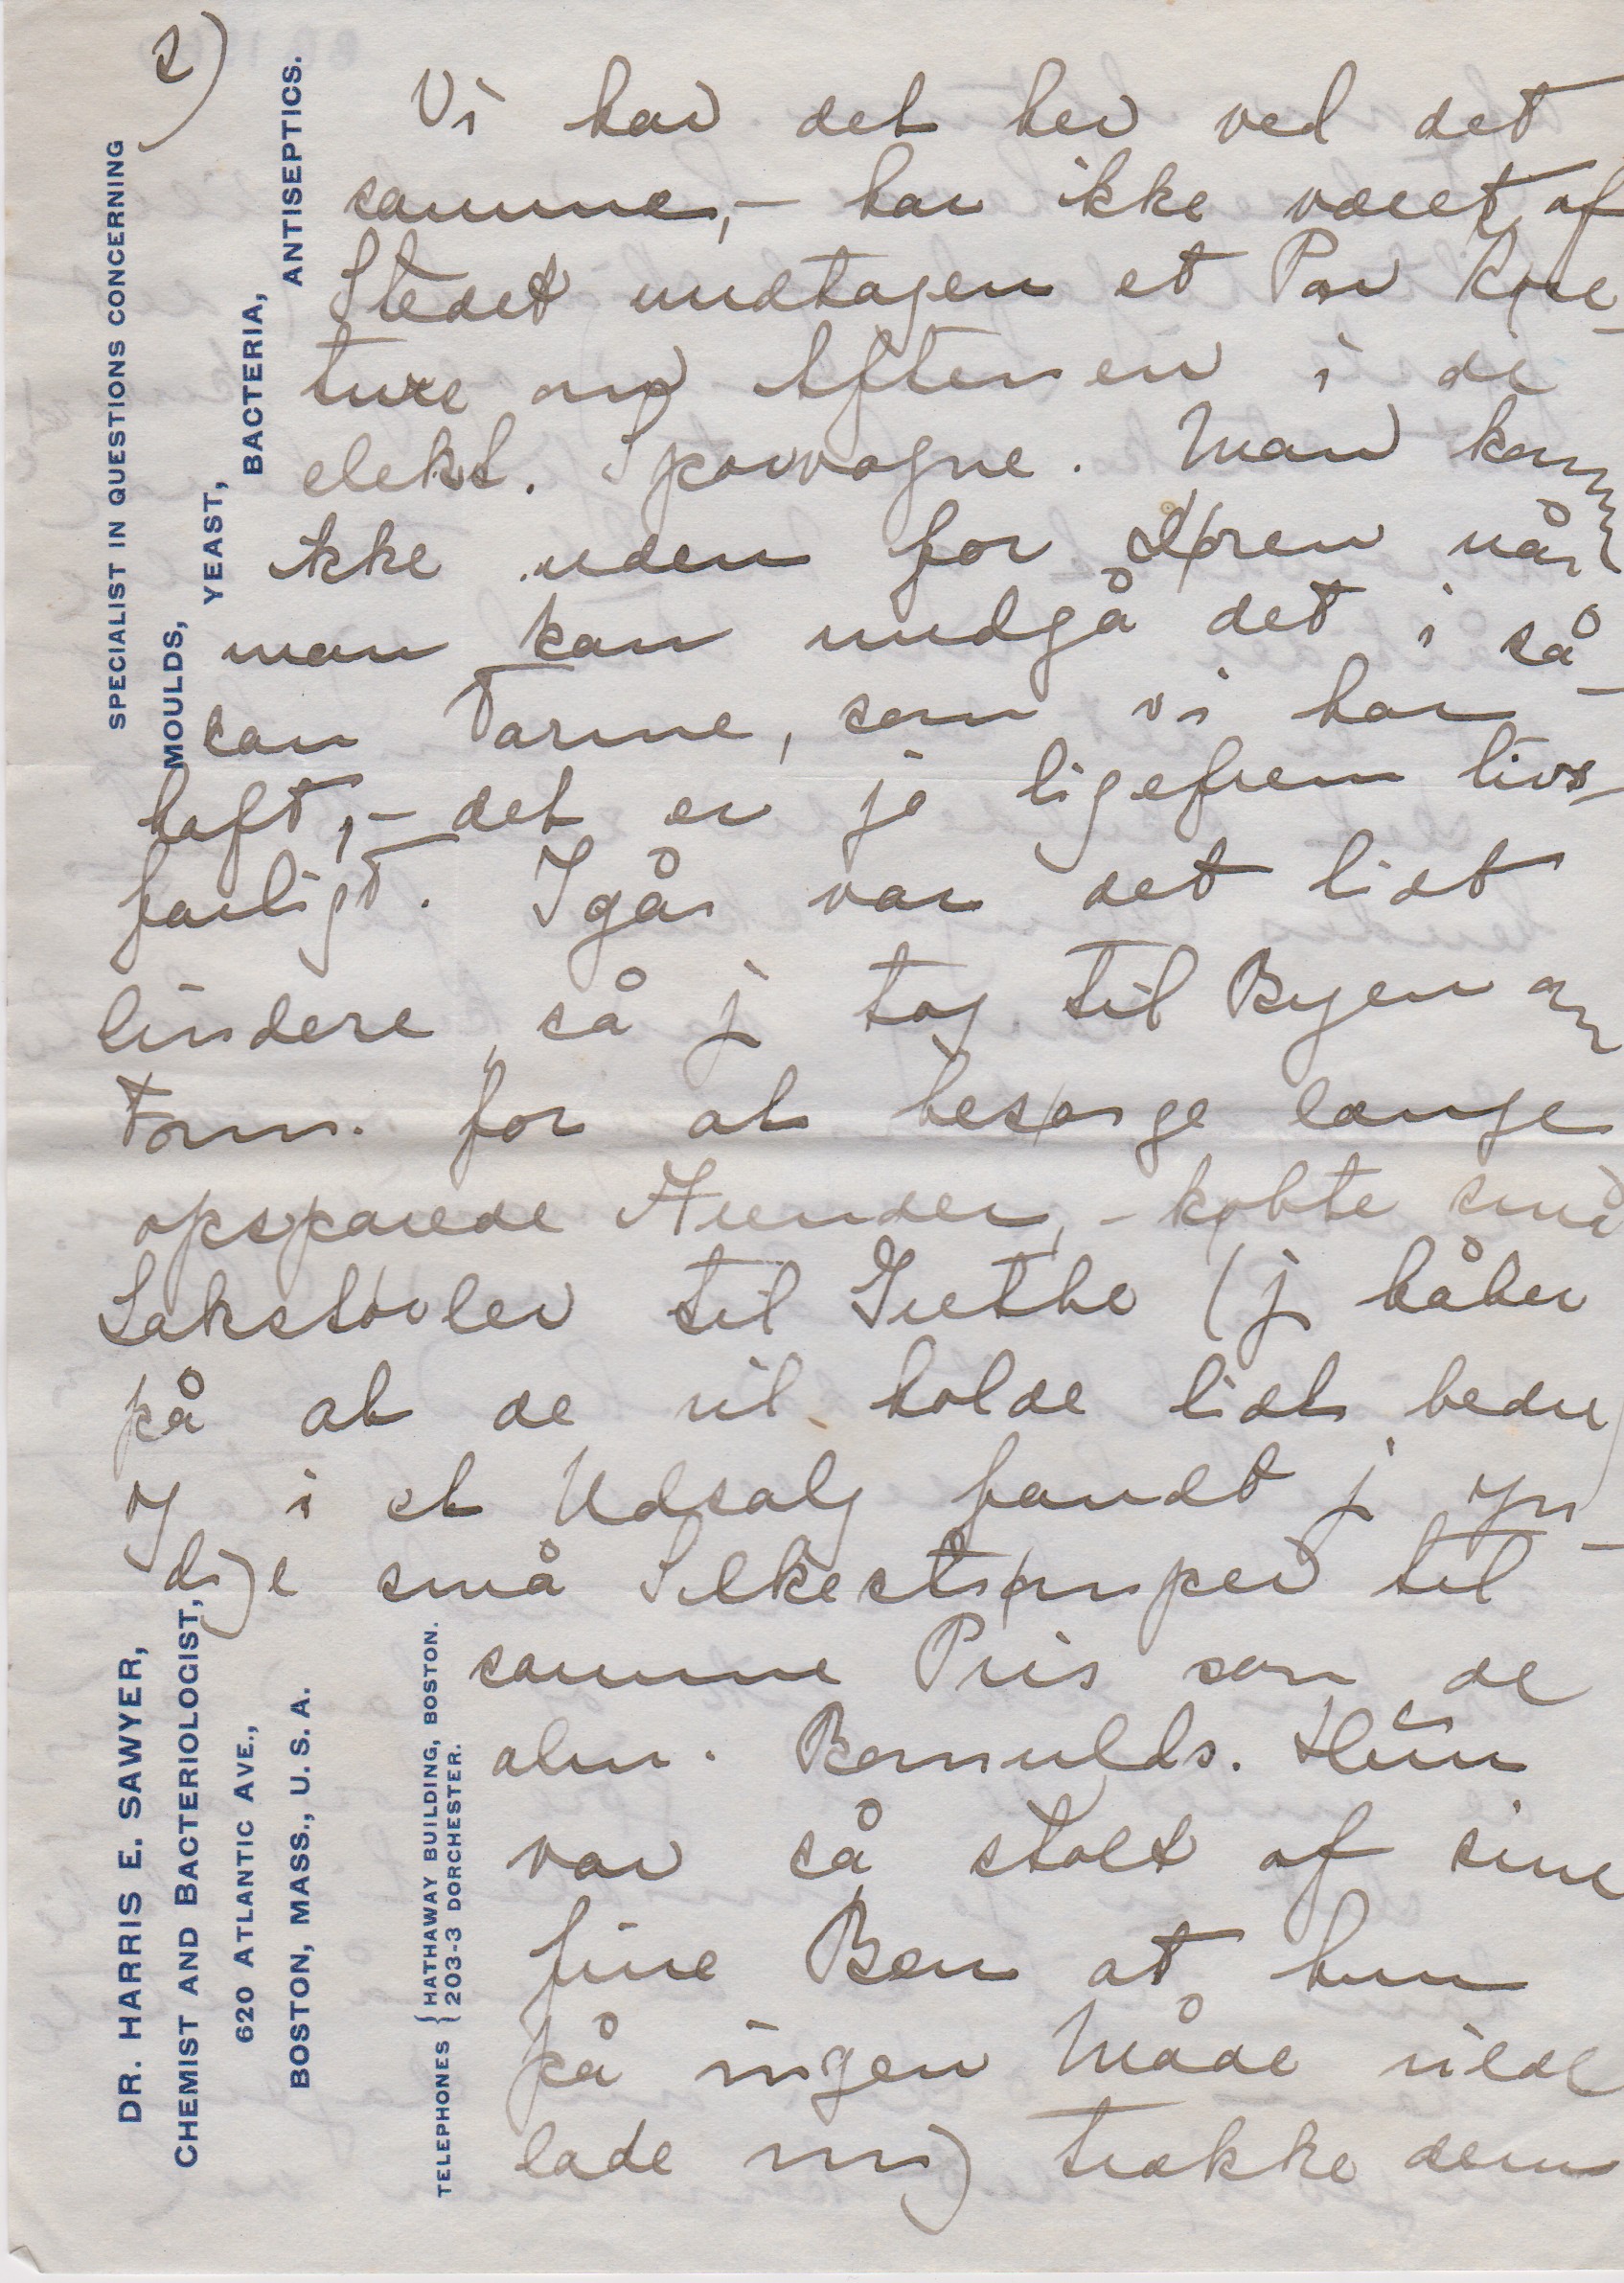 2)
SPECIALIST IN QUESTIONS CONCERNING
MOULDS,
YEAST,
BACTERIA,
ANTISEPTICS.
Vi har det her ved det
samme, - har ikke været af
Stedet undtagen et Par Køre-
ture om Aftenen i de
elekt. Sporvogne. Man kom
ikke uden for Døren når
man kan undgå det i så
dan Varme, som vi har
haft, - det er jo ligefrem livs-
farligt. Igår var det lidt
lindere så j tog til Byen om
Form. for at besørge længe
opsparede Ærender, - købte små
Lakstøvler til Grethe (j håber
på at de vil holde lidt bedre)
og i et Udsalg fandt j yn-
dige små Silkestrømper til
samme Pris som de
alm. Bomulds. Hun
var så stolt af sine
fine Ben at hun
på ingen Måde vilde
lade mig trække dem
DR. HARRIS E. SAWYER,
CHEMIST AND BACTERIOLOGIST,
620 ATLANTIC AVE.,
BOSTON, MASS., U. S. A.
TELEPHONES { HATHAWAY BUILDING, BOSTON.
203-3 DORCHESTER.